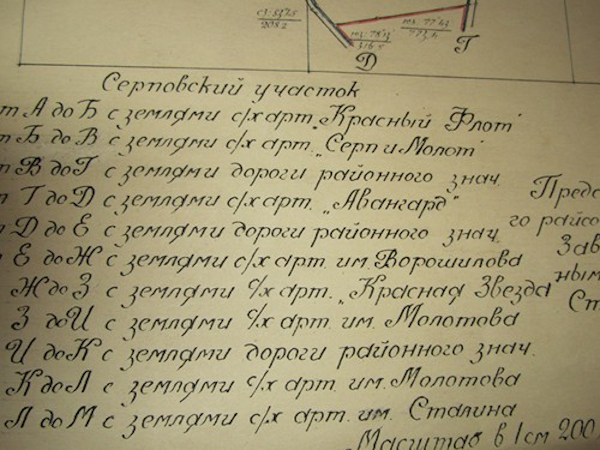 сз: 53°7,5
208,2
юз: 78°13'
316,5
юз: 77°43'
773,5
Д
Г
Серповский участок
т А до Б с землями с/х арт. „Красный Флот"
т Б до В с землями с/х арт. „Серп и Молот"
т В до Г с землями дороги районного знач.
т Г до Д с землями с/х арт. „Авангард"
т Д до Е с землями дороги районного знач.
Е до Ж с землями с/х арт. им. Ворошилова
Ж до З с землями с/х арт. „Красная Звезда
З до И с землями с/х арт. им. Молотова
И до К с землями дороги районного знач.
К до Л с землями с/х арт. им. Молотова
Л до М с землями с/х арт. им. Сталина
Предс
го райсо
Зав
ным
Ст
Масштаб в 1 см 200